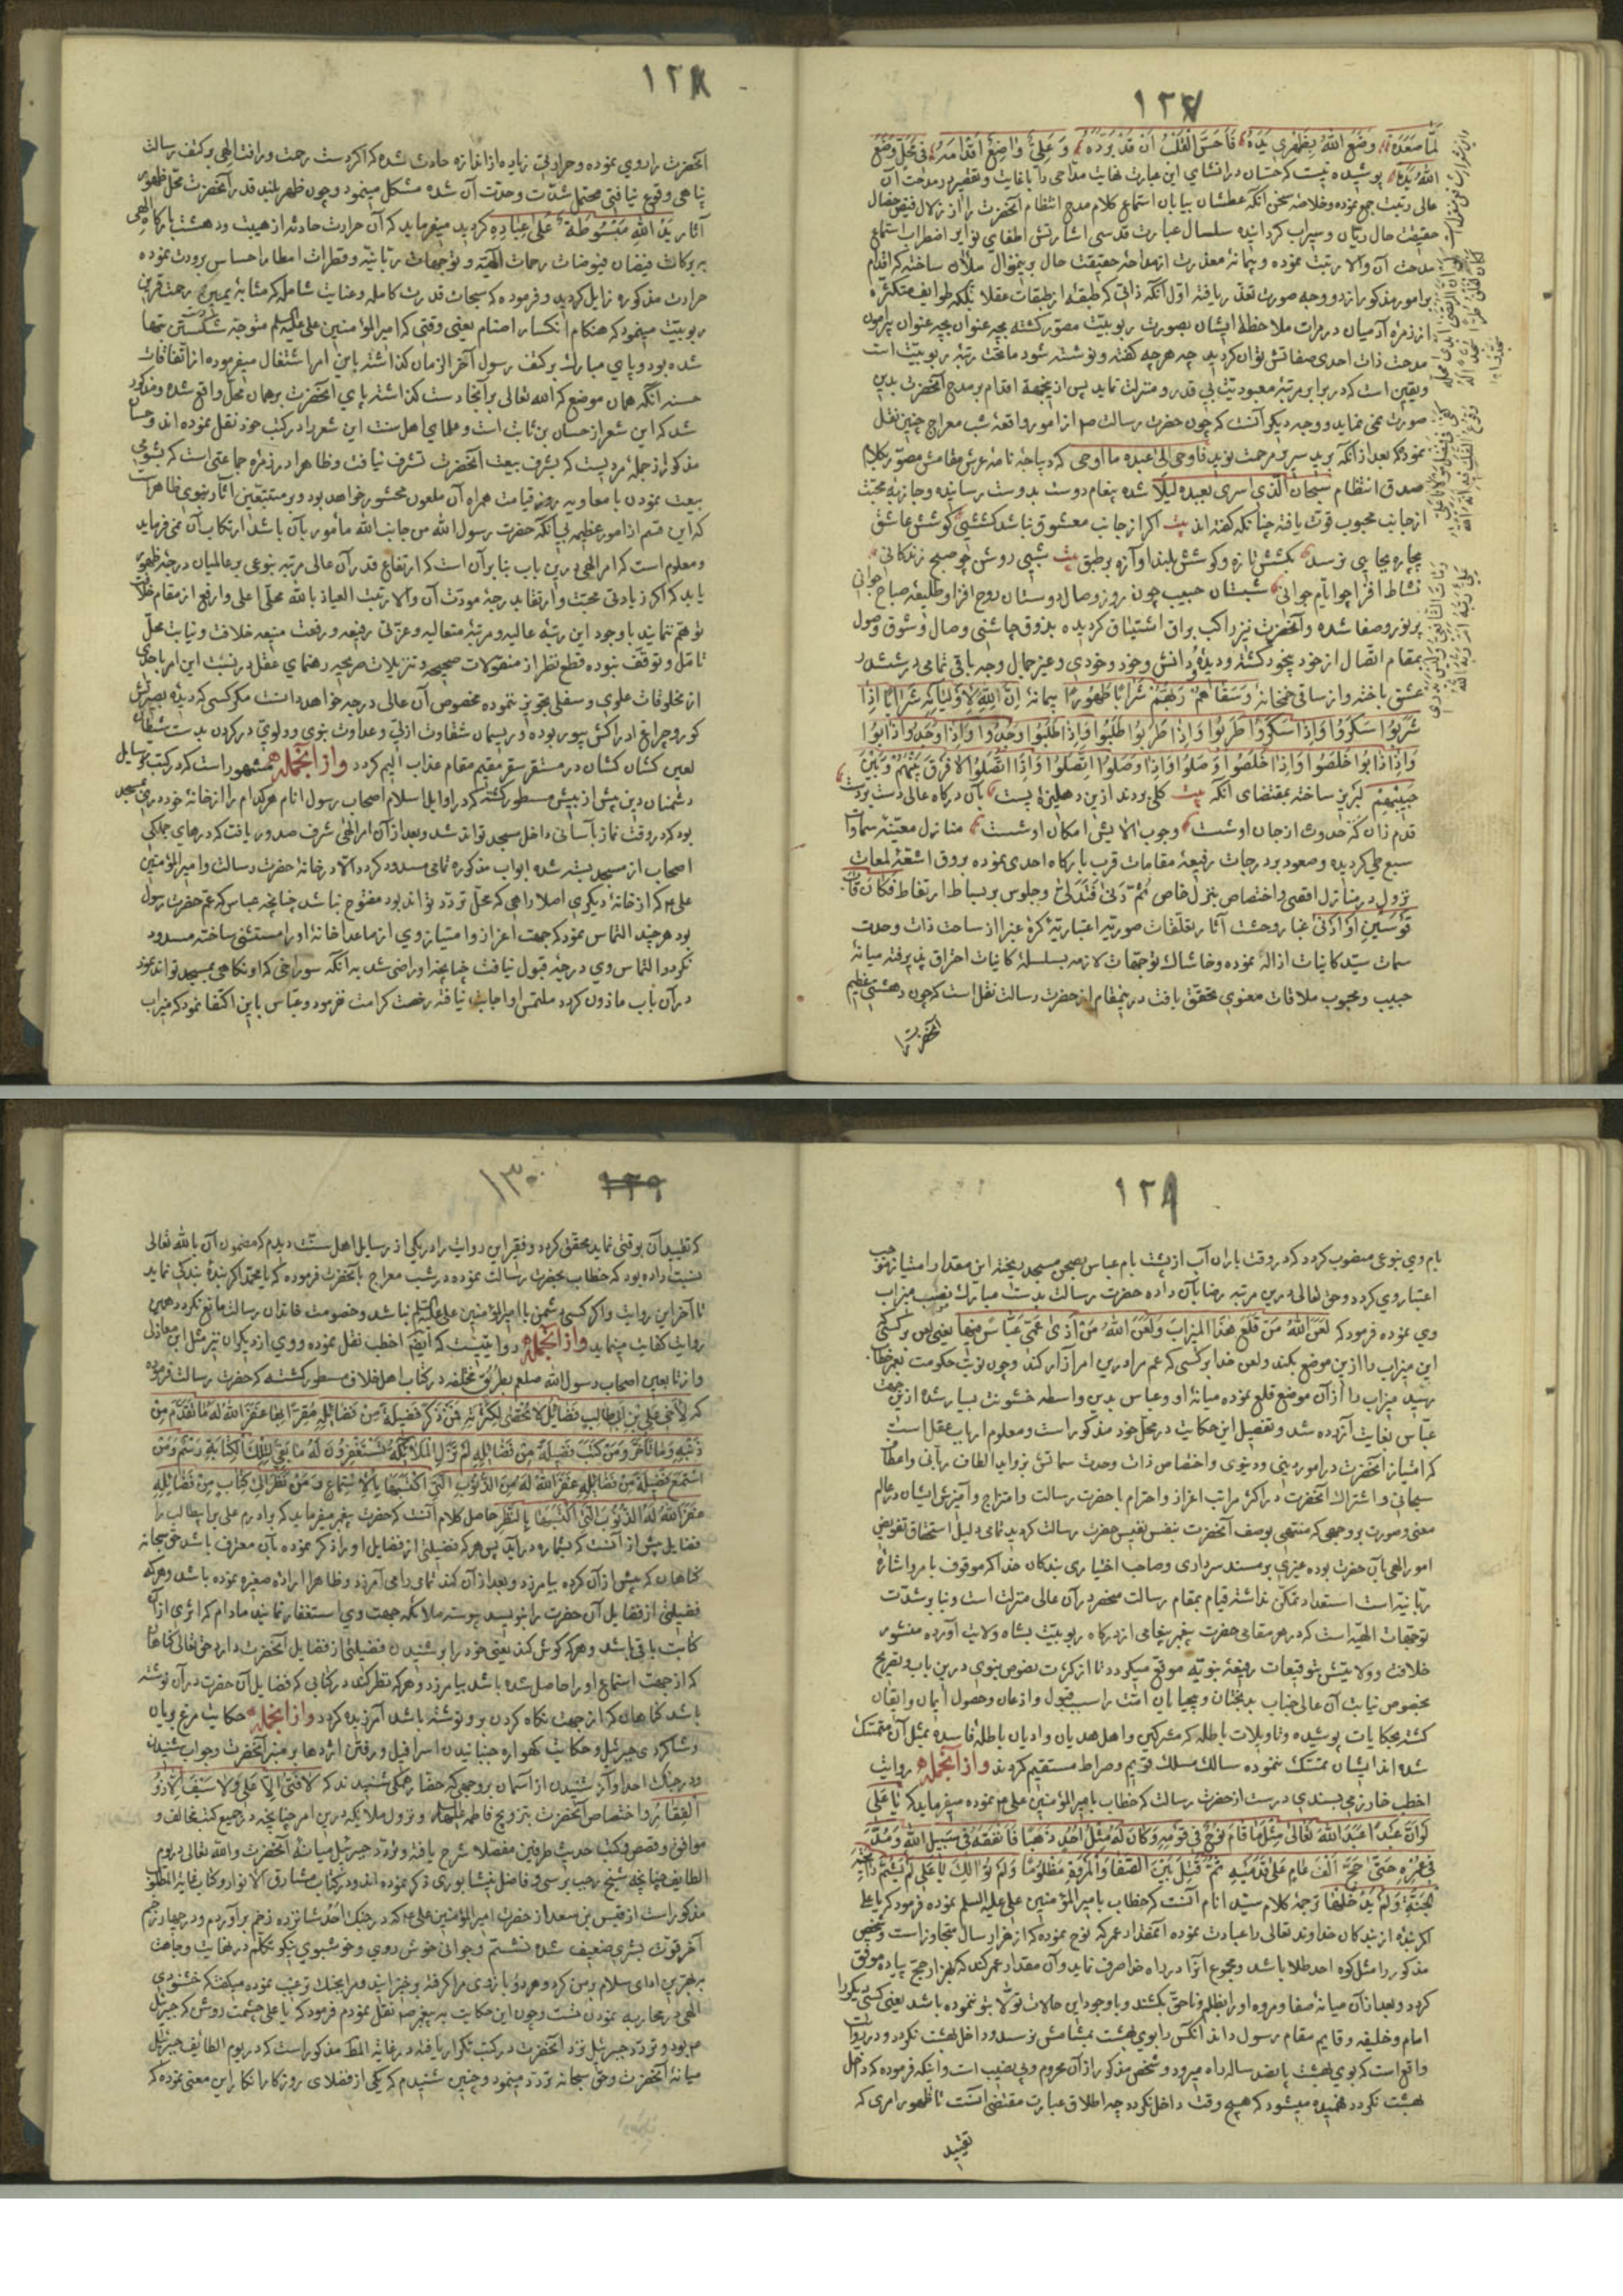 ١٢٧
لمّا صعده وضع الله بظهري يده فاحسّ القلب ان قد برّده وعليّ واضع اقدامه في محلّ وضع
الله يده پوشیده نیست که حسّان در انشای این عبارت نهایت مدّاحی
عالی رتبت جمع نموده و خلاصه سخن آنکه عطشان بیابان استماع کلام مدح انتظام آنحضرت را از زلال فیض خصال
حقیقت حال ریّان و سیراب گردانیده
مدحت آن والا رتبت نموده
بر امور مذکور از دو وجه صورت تعذّر یافته اوّل آنکه ذاتی که طبقه از طبقات عقلا بلکه طوایف متکثره
از زمره آدمیان در مرات ملاحظهٔ ایشان بصورت ربوبیّت مصوّر کشته بچه عنوان
مدحت ذات احدی صفاتش توان کردید چه هرچه کفته و نوشته شود ماتحت رتبهٔ ربوبیّت است
و یقین است که در برابر مرتبهٔ معبودیّت بی قدر و منزلت نماید پس از ینجهة اقدام بر مدح آنحضرت بدین
صورت نمی نماید و وجه دیکر آنست که چون حضرت رسالت ص از امور واقعهٔ شب معراج چنین نقل
نموده که بعد از آنکه فاوحی الی عبده ما اوحی که دیباجه نامهٔ
صدق انتظام سبحان الّذی اسری بعبده لیلا شده پیغام دوست بدوست رسانیده و جاذبهٔ محبّت
از جانب محبوب قوّت یافته چنانکه کفته اند بیت اکر از جانب معشوق نباشد کششی کوشش عاشق
بیچاره بجایی نرسد بکشش تازه و کوشش بلند آوازه بر طبق بیت شبی روشن چو صبح زندکانی
نشاط افزا چو ایّام جوانی شبستان حبیب چون روز وصال دوستان روح افزا و طلیعهٔ صباح جوانی
پر نور و صفا شده و آنحضرت نیز راکب براق اشتیاق کردیده بذوق چاشنی وصال و شوق وصول
بمقام اتّصال از خود بیخود کشته
عشق باخته و از ساقی خمخانه وسقاهم ربّهم شرابا طهورا پیمانه انّ الله لاولیائه شرابا اذا
شربوا سکروا واذا سکروا طربوا واذا طربوا طلبوا واذا طلبوا وجدوا واذا وجدوا ذابوا
واذا ذابوا خلصوا واذا خلصوا وصلوا واذا وصلوا اتّصلوا واذا اتّصلوا لا فرق بینهم وبین
حبیبهم لبریز ساخته بمقتضای آنکه بیت
قدم زان که حدوث از جان او شست وجوب آلایش امکان او شست منازل معیّنهٔ سماوات
سبع طی کردیده و صعود بر درجات رفیعهٔ مقامات قرب بارکاه احدی نموده
نزول در منازل اقصی و اختصاص بنزل خاص ثمّ دنی فتدلّی و جلوس بر بساط ارتفاط فکان قاب
قوسین او ادنی
سمات سیّد کاینات ازاله نموده و خاشاک توجّهات لازمه بسلسلهٔ کاینات احتراق پذیرفته میانهٔ
حبیب و محبوب ملاقات معنوی تحقّق یافت درینمقام از حضرت رسالت نقل است که چون دهشتی عظیم
آنحضرت را
١٢٨
آنحضرت را روی نموده و حرارتی زیاده از اندازه حادث شده که اکر دست رحمت و رافت الهی بر کتف رسالت
پناهی وقوع نیافتی محتمل شدّت و حدّت آن شده مشکل مینمود و چون ظهر بلند قدر آنحضرت محلّ ظهور
آثار ید الله مبسوطة علی عباده کردید میفرماید که آن حرارت حادثه از هیبت و دهشت بارکاه الهی
ببرکات فیضان فیوضات رحمات الهیّه و توجّهات ربّانیّه و قطرات امطار احساس برودت نموده
حرارت مذکوره زایل کردید و فرموده که
ربوبیّت مینمود که هنکام انکسار اصنام یعنی وقتی که امیر المؤمنین علی علیه السلم متوجّه شکستن بتها
شده بود و پای مبارک بر کتف رسول آخر الزمان کذاشته باین امر اشتغال میفرموده از اتّفاقات
حسنه آنکه همان موضع که الله تعالی بر آنجا دست کذاشته پای آنحضرت بر همان محلّ واقع شده و مذکور
شد که این شعر از حسان بن ثابت است و علمای اهل سنت این شعر را در کتب خود نقل نموده اند و حسان
مذکور از جمله مردیست که بشرف بیعت آنحضرت تشرف نیافت و ظاهرا در زمره جماعتی است که بشومی
بیعت نمودن با معاویه روز قیامت همراه آن ملعون محشور خواهد بود و بر متتبّعین آثار نبوی ظاهر است
که این قسم از امور عظیمه بی آنکه حضرت رسول الله من جانب الله مامور بآن باشد ارتکاب آن نمی فرماید
و معلوم است که امر الهی درین باب بنا بر آن است که ارتفاع قدر آن عالی مرتبه بنوعی بر عالمیان درجهٔ ظهور
یابد که اکر زیادتی محبّت و ارتقاء بدرجهٔ مودّت آن والا رتبت العیاذ بالله محلّی اعلی و ارفع از مقام
توهّم نمایند با وجود این رتبهٔ عالیه و مرتبهٔ متعالیه و عزّتی رفیعه و رفعت منیعه خلافت و نیابت محلّ
تامّل و توقّف نبوده قطع نظر از منقولات صحیحه و تنزیلات صریحه رهنمای عقل در نسبت این امر باحدی
از مخلوقات علوی و سفلی تجویز ننموده مخصوص آن عالی درجه خواهد دانست مکر کسی که دیدهٔ بصیرتش
کور و چراغ ادراکش بینور بوده و ریسمان شقاوت ازلی و عداوت نبوی و ولوی در کردن بدست شیطان
لعین کشان کشان در مستقر سقر مقیم مقام عذاب الیم کردد و از آنجمله مشهور است که در کتب و رسایل
دشمنان دین پیش از پیش مسطور کشته که در اوایل اسلام اصحاب رسول انام هر کدام را از خانهٔ خود دری بمسجد
بود که در وقت نماز بآسانی داخل مسجد تواند شد و بعد از آن امر الهی شرف صدور یافت که درهای جمله کی
اصحاب از مسجد بسته شده ابواب مذکوره تمامی مسدود کردد الّا در خانهٔ حضرت رسالت و امیر المؤمنین
علی ع که از خانهٔ دیکری اصلا راهی که محلّ تردّد تواند بود مفتوح نباشد چنانچه عباس که عمّ حضرت رسول
بود هر چند التماس نمود که جهت اعزاز و امتیاز وی از ماعدا خانهٔ او را مستثنی ساخته مسدود
نکردد التماس وی درجه قبول نیافت چنانچه او راضی شد به آنکه سوراخی که او نکاهی بمسجد تواند نمود
در آن باب ماذون کردد ملتمس او اجابت نیافته رخصت کرامت نفرمود و عبّاس باین اکتفا نمود که میزاب
١٢٩
بام وی بنوعی منصوب کردد که در وقت باران آب از پشت بام عباس بصحن مسجد ریخته این مقدار امتیاز موجب
اعتبار وی کردد و حق تعالی درین مرتبه رضا بآن داده حضرت رسالت بدست مبارک نصب میزاب
وی نموده فرمود که لعن الله من قلع هذا المیزاب ولعن الله من اذی عمّی عبّاس منها یعنی لعن بر کسی که
این میزاب را ازین موضع بکند و لعن خدا بر کسی که عم مرا درین امر آزار کند و چون نوبت حکومت بعمر خطاب
رسید میزاب را از آن موضع قلع نموده میانهٔ او و عباس بدین واسطه خشونت بسیار شده ازین جهت
عبّاس بغایت آزرده شد و تفصیل این حکایت در محلّ خود مذکور است و معلوم ارباب عقل است
که امتیاز آنحضرت در امور دینی و دنیوی و اختصاص ذات وحدت سماتش بزواید الطاف ربّانی و اعطاف
سبحانی و اشتراک آنحضرت در اکثر مراتب اعزاز و احترام با حضرت رسالت و امتزاج و آمیزش ایشان در عالم
معنی و صورت بر وجهی که منتهی بوصف آنحضرت بنفس نفیس حضرت رسالت کردید تمامی دلیل استحقاق تفویض
امور الهی بآن حضرت بوده غیری بر مسند سرداری و صاحب اختیاری بندکان خدا که موقوف بامر و اشارهٔ
ربّانیّه است استعداد تمکّن نداشته قیام بمقام رسالت منحصر در آن عالی منزلت است و بنا بر شدّت
توجّهات الهیّه است که در هر مقامی حضرت پیغمبر پیغامی از درکاه ربوبیّت بشاه ولایت آورده منشور
خلافت و ولایتش بتوقیعات رفیعهٔ نبویّه موقّع میکردد تا از کثرت نصوص نبوی درین باب و تصریح
بخصوص نیابت آن عالی جناب بدبختان و بیحیایان امّت را سبب قبول و اذعان و حصول ایمان و ایقان
کشته بحکایات پوشیده و تاویلات باطله که مشرکین و اهل هدیان و ادیان باطلهٔ فاسده بمثل آن متمسّک
شده اند ایشان تمسّک ننموده سالک مسلک قویم و صراط مستقیم کردند و از آنجمله روایت
اخطب خوارزمی بسندی درست از حضرت رسالت که خطاب بامیر المؤمنین علی ع نموده میفرماید که یا علی
لو انّ عبدا عبد الله تعالی مثل ما قام نوح فی قومه وکان له مثل احد ذهبا فانفقه فی سبیل الله ومدّ
فی عمره حتی حجّ الف عام علی قدمیه ثمّ قتل بین الصّفا والمروة مظلوما ولم یوالک یا علی لم یشمّ رایحة
الجنّة ولم یدخلها ترجمهٔ کلام سیّد انام آنست که خطاب بامیر المؤمنین علی علیه السلم نموده فرمود که یا علی
اکر بندهٔ از بندکان خداوند تعالی را عبادت نموده آنمقدار عمر که نوح نموده که از هزار سال متجاوز است و شخص
مذکور را مثل کوه احد طلا باشد و مجموع آنرا در راه خدا صرف نماید و آن مقدار عمر کند که هزار حج پیاده موفّق
کردد و بعد از آن میانهٔ صفا و مروه او را بظلم و ناحق بکشند و با وجود این حالات تولّا بتو ننموده باشد یعنی کسی دیکر را
امام و خلیفه و قایم مقام رسول داند آنکس را بوی بهشت بمشامش نرسد و داخل بهشت نکردد و در روایات
واقع است که بوی بهشت پانصد ساله راه میرود و شخص مذکور از آن محروم و بی نصیب است و اینکه فرموده که داخل
بهشت نکردد فهمیده میشود که هیچ وقت داخل نکردد چه اطلاق عبارت مقتضی آنست تا ظهور امری که
تقیید
١٣٠
١٢٩
که تقیید آن بوقتی نماید محقق کردد و فقیر این روایت را در یکی از رسایل اهل سنّت دیدم که مضمون آن بالله تعالی
نسبت داده بود که خطاب بحضرت رسالت نموده در شب معراج بآنحضرت فرموده که یا محمّد اکر بندهٔ بندکی نماید
تا آخر این روایت و اکر کسی دشمن با امیر المؤمنین علی علیه السلم نباشد و خصومت خاندان رسالت مانع نکردد همین
روایت کفایت مینماید و از آنجمله روایتیست که ایضا اخطب نقل نموده و وی از دیکران نیز مثل ابن مغازلی
و از تابعین اصحاب رسول الله صلعم بطریق مختلفه در کتاب اهل خلاف مسطور کشته که حضرت رسالت فرموده
که لاخی علی بن ابی طالب فضایل لا تحصی لکثرته فمن ذکر فضیلة من فضائله مقرّا بها غفر الله له ما تقدّم من
ذنبه وما تاخّر ومن کتب فضیلة من فضائله لم تزل الملائکة تستغفرون له ما بقی لتلک الکتابة رسم ومن
استمع فضیلة من فضائله غفر الله له من الذّنوب الّتی اکتسبها بالاستماع ومن نظر الی کتاب من فضائله
غفر الله له الذّنوب الّتی اکتسبها بالنّظر حاصل کلام آنست که حضرت پیغمبر میفرماید که برادرم علی بن ابی طالب را
فضایل بیش از آنست که بشماره درآید پس هر که فضیلتی از فضایل او را ذکر نموده بآن معترف باشد حق سبحانه
کناهان که پیش از آن کرده بیامرزد و بعد از آن کند تمامی را می آمرزد و ظاهرا اراده صغیره نموده باشد و هر که
فضیلتی از فضایل آن حضرت را بنویسد پیوسته ملائکه جهت وی استغفار نمایند مادام که اثری از آن
کتابت باقی باشد و هر که کوش کند یعنی خود را بشنیدن فضیلتی از فضایل آنحضرت دارد حق تعالی کناهان
که از جهت استماع او را حاصل شده باشد بیامرزد و هر که نظر کند در کتابی که فضایل آن حضرت در آن نوشته
باشد کناهان که از جهت نکاه کردن بر و نوشته باشد آمرزیده کردد و از آنجمله حکایت مرغ بریان
و شاکردی جبرئیل و حکایت کهواره جنبانیدن اسرافیل و رفتن اژدها بر منبر آنحضرت و جواب شنیدن
و در جنک احد آواز شنیدن از آسمان بر وجهی که حضار همکی شنیدند که لا فتی الّا علی ولا سیف الّا ذو
الفقار و اختصاص آنحضرت بتزویج فاطمه علیها السلم و نزول ملایکه درین امر چنانچه در جمیع کتب مخالف و
موافق و قصص و کتب حدیث طرفین مفصّلا شرح یافته و تردّد جبرئیل میانهٔ آنحضرت و الله تعالی در یوم
الطایف چنانچه شیخ رجب برسی و فاضل نیشابوری ذکر نموده اند و در کتاب مشارق الانوار و کتاب غایة المطلوب
مذکور است از قیس بن سعد از حضرت امیر المؤمنین علی ع که در جنک احد شانزده زخم برآوردم و در چهار زخم
آخر قوّت بشری ضعیف شده نشستم و جوانی خوش روی و خوشبوی نیکو تکلّم در نهایت وجاهت
بهترین ادای سلام بر من کرد و هر دو بازوی مرا کرفته برخیزانید و مرا بجنک ترغیب نموده میکفت که خشنودی
الهی در محاربه نمودن تست و چون این حکایت به پیغمبر ص نقل نمودم فرمود که یا علی چشمت روشن که جبرئیل
ع بود و تردّد جبرئیل نزد آنحضرت در کتب تکرار یافته در غایة المط مذکور است که در یوم الطائف جبرئیل
میانهٔ آنحضرت و حق سبحانه تردّد مینمود و چنین شنیدم که یکی از فضلای روزکار انکار این معنی نموده که